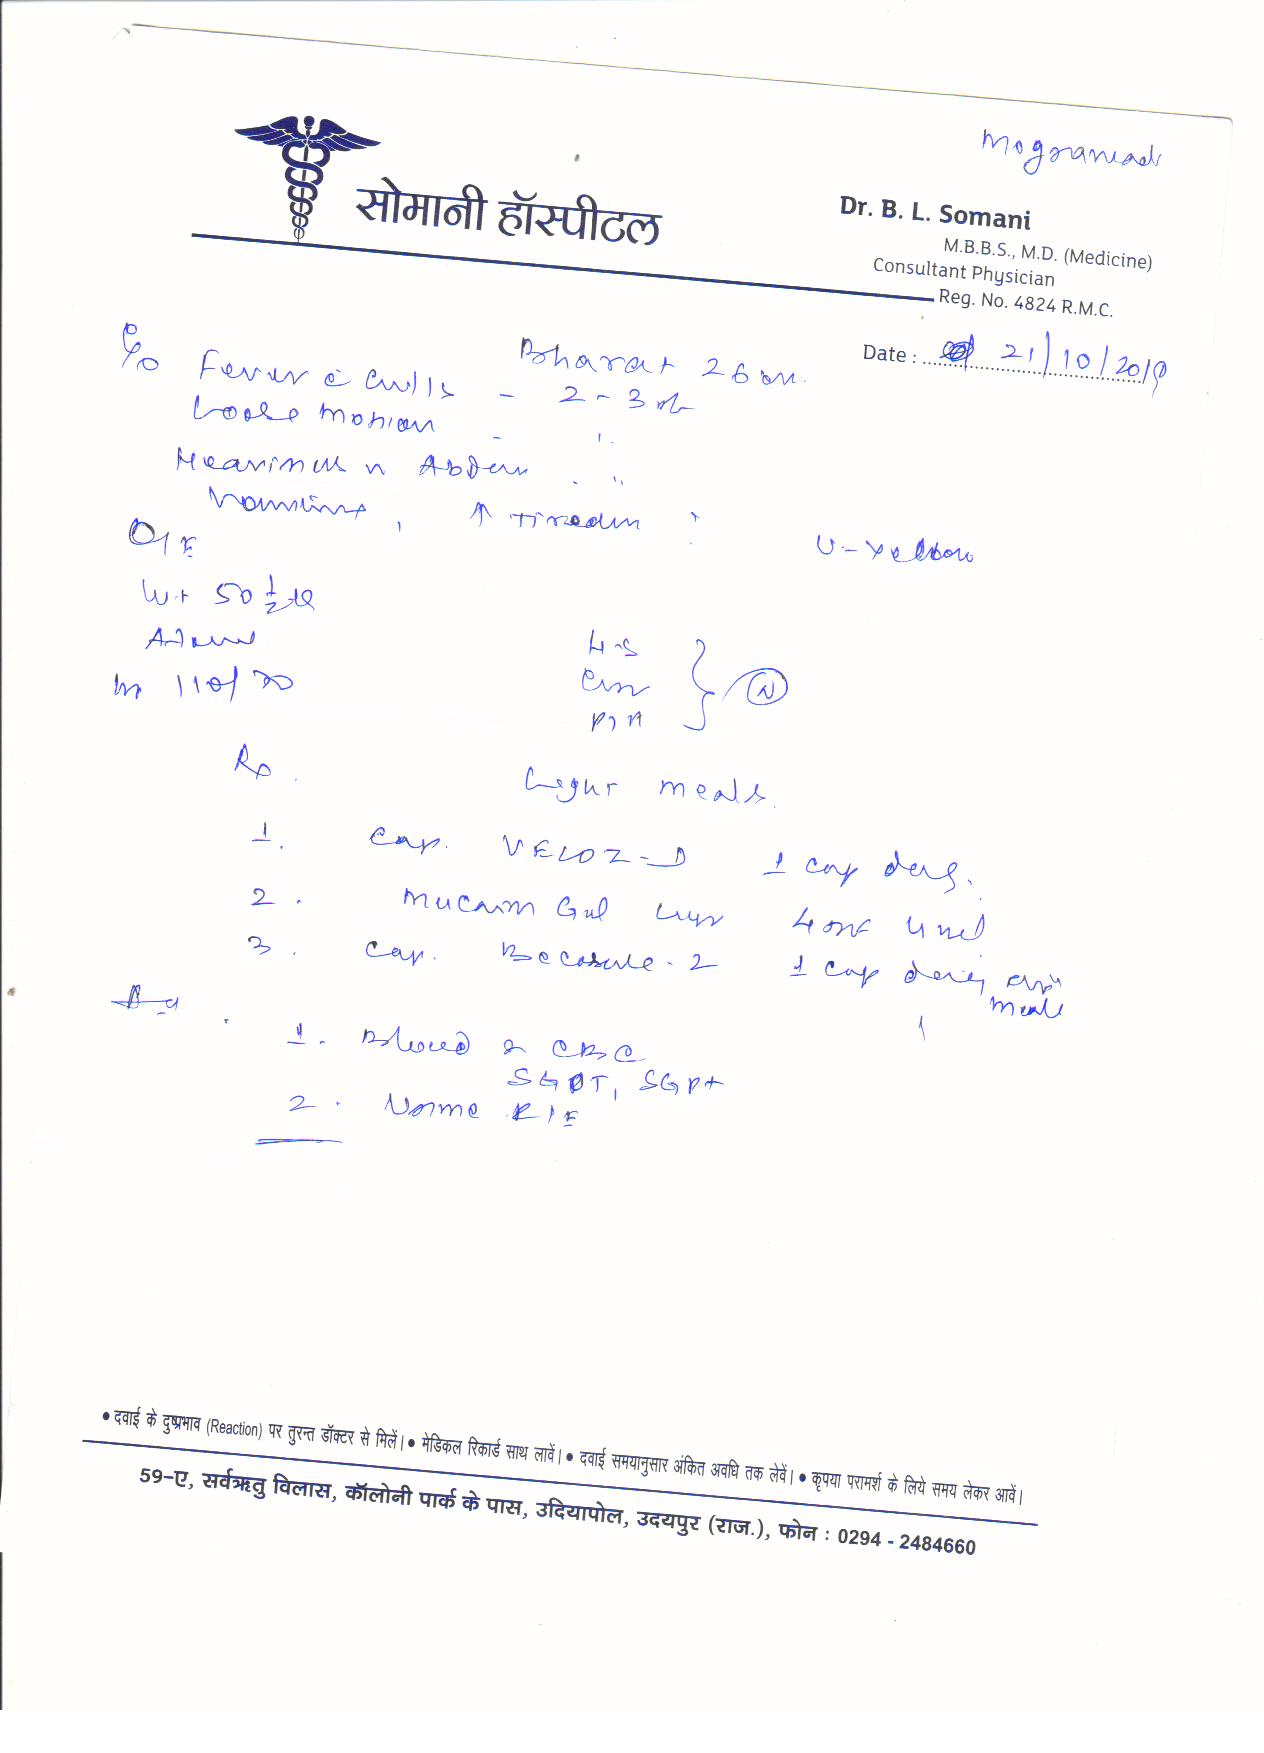 Mogra
सोमानी हॉस्पीटल
Dr. B. L. Somani
M.B.B.S., M.D. (Medicine)
Consultant Physician
Reg. No. 4824 R.M.C.
Date : 21/10/2019
C/o Bharat 26
Fever c̄ chills - 2-3
Loose motion - "
Heaviness in Abdomen "
Vomiting, ↑ Tiredness
U - Yellow
O/E
Wt 50 1/2
110/70
H-S
P/A
} N
Rp.
Light meals
1. Cap. VELOZ-D 1 cap
2. Mucaine Gel
3. Cap. Becosule-Z 1 cap
meals
1. Blood CBC
SGOT, SGPT
2. Urine R/E
• दवाई के दुष्प्रभाव (Reaction) पर तुरन्त डॉक्टर से मिलें। • मेडिकल रिकार्ड साथ लावें। • दवाई समयानुसार अंकित अवधि तक लेवें। • कृपया परामर्श के लिये समय लेकर आवें।
59-ए, सर्वऋतु विलास, कॉलोनी पार्क के पास, उदियापोल, उदयपुर (राज.), फोन : 0294 - 2484660